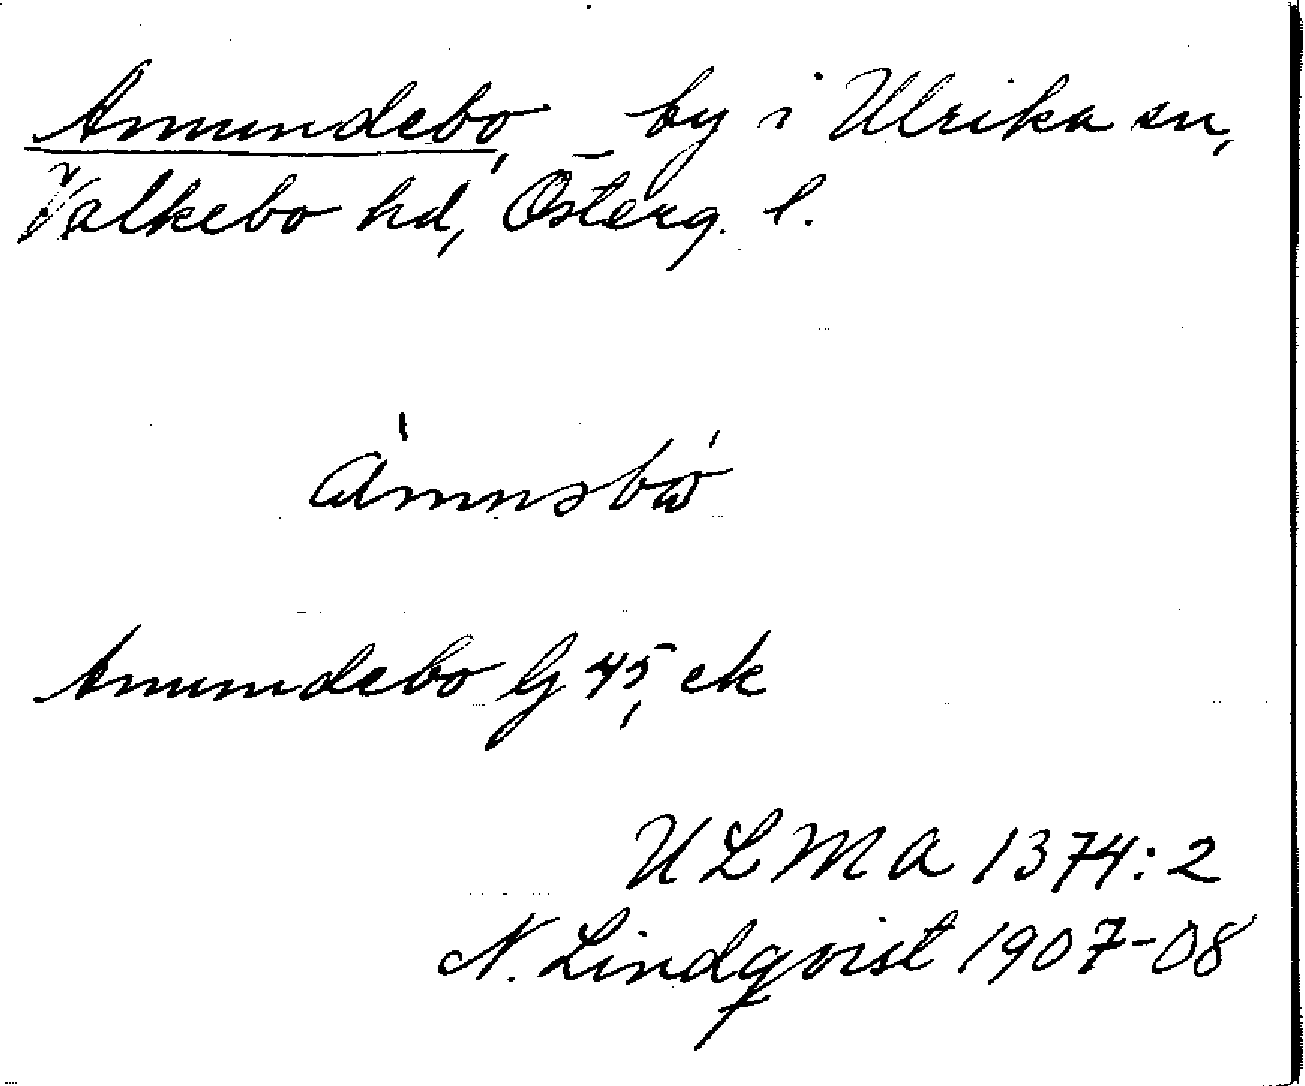 Amundebo, by i Ulrika sn,
Valkebo hd, Österg. l.
Amundebo G 45, ek
ULMA 1374:2
N. Lindqvist 1907-08